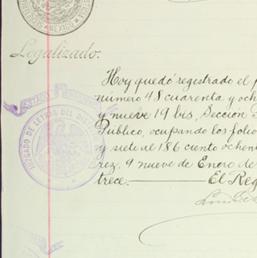 Legalizado.
Hoy quedó registrado el p
número 48 cuarenta y och
y nueve 19 bis, Sección
Público, ocupando los folio
y siete al 186 ciento ochen
rez, 9 nueve de Enero de
trece.— El Reg
JUZGADO DE LETRAS DEL DIS